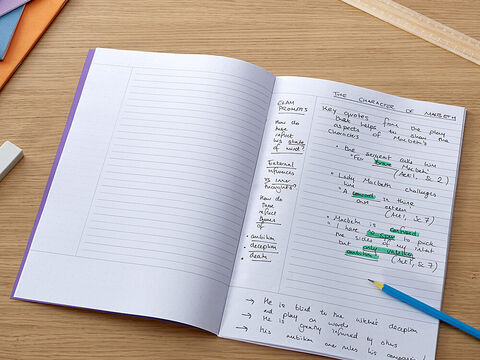 THE CHARACTER OF MACBETH
EXAM
PROMPTS
How do
these
reflect
his state
of mind?
External
influences
vs inner
thoughts?
How do
these
reflect
themes
of
• ambition
• deception
• death
Key quotes from the play
that helps to show the
aspects of Macbeth's
character:
• The sergeant calls him
"For brave Macbeth"
(Act 1, Sc 2)
• Lady Macbeth challenges
him
"A coward in thine
own esteem"
(Act 1, Sc 7)
• Macbeth is confused
"I have no spur to prick
the sides of my intent
but only vaulting
ambition"
(Act 1, Sc 7)
→ He is blind to the witches' deception
and play on words
→ He is greatly influenced by others
→ His ambition over rules his